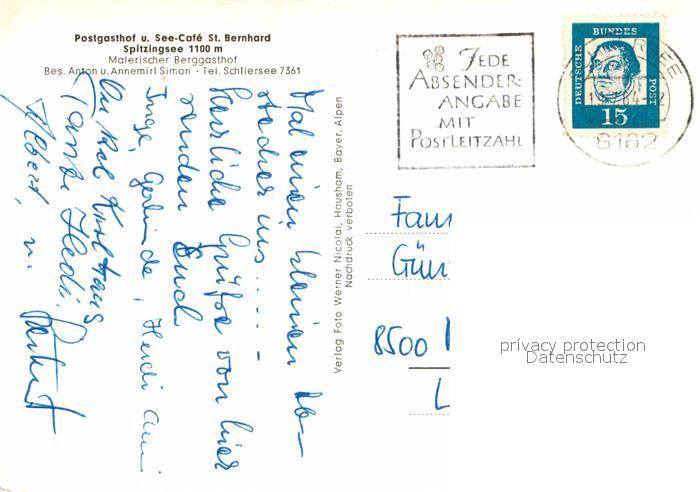 Postgasthof u. See-Café St. Bernhard
Spitzingsee 1100 m
Malerischer Berggasthof
Bes. Anton u. Annemirl Simon · Tel. Schliersee 7361
Mal einen kleinen Ab-
stecher ins . . . . . –
Herzliche Grüße von hier
senden Euch
Inge, Gerlinde, Heidi
Onkel Kurt
Tante Hedi,
Albert, u.
Verlag Foto Werner Nicolai, Hausham, Bayer. Alpen
Nachdruck verboten
JEDE
ABSENDER-
ANGABE
MIT
POSTLEITZAHL
DEUTSCHE BUNDES POST
15
8162
Fam
Gün
8500
L
privacy protection
Datenschutz